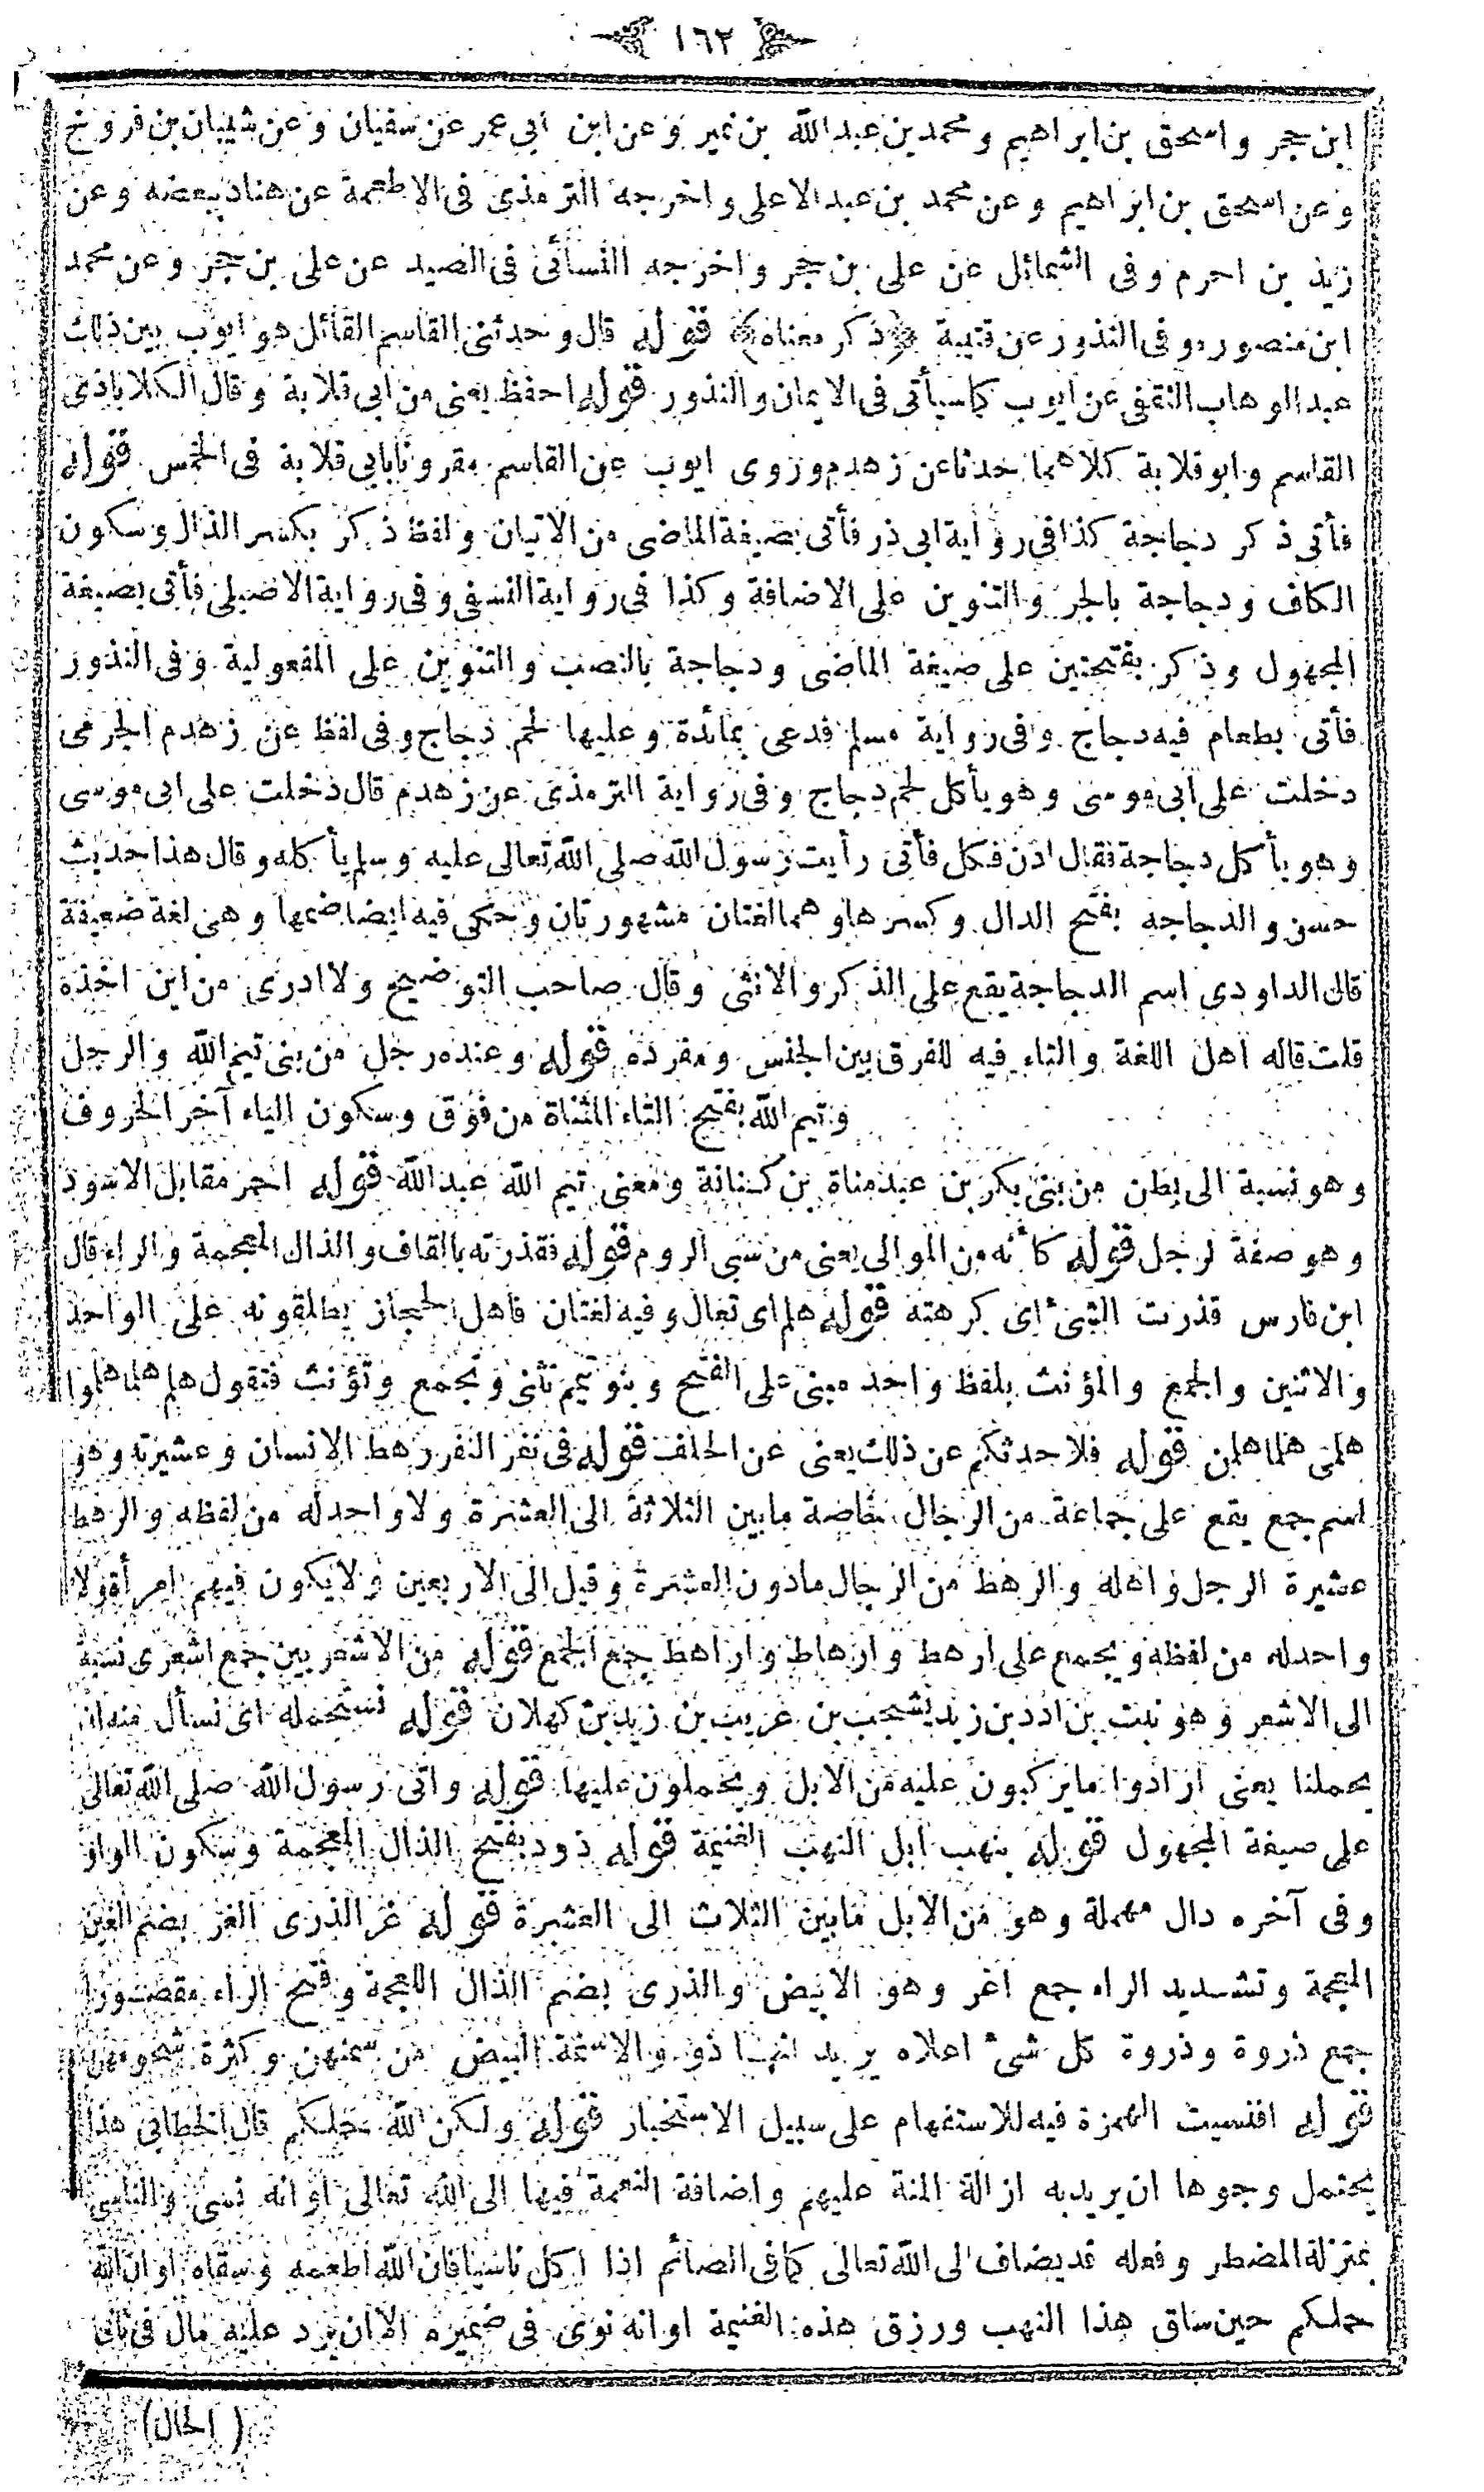 ١٦٢
ابن حجر واسحق بن ابراهيم ومحمد بن عبدالله بن نمير وعن ابن ابى عمر عن سفيان وعن شيبان بن فروخ
وعن اسحق بن ابراهيم وعن محمد بن عبد الاعلى واخرجه الترمذى فى الاطعمة عن هناد ببعضه وعن
زيد بن اخرم وفى الشمائل عن على بن حجر واخرجه النسائى فى الصيد عن على بن حجر وعن محمد
ابن منصور وفى النذور عن قتيبة ﴿ذكر معناه﴾ قوله قال وحدثنى القاسم القائل هو ايوب بين ذلك
عبد الوهاب الثقفى عن ايوب كما سيأتى فى الايمان والنذور قوله احفظ يعنى من ابى قلابة وقال الكلاباذى
القاسم وابو قلابة كلاهما حدثا عن زهدم وروى ايوب عن القاسم مقرونا بابى قلابة فى الخمس قوله
فأتى ذكر دجاجة كذا فى رواية ابى ذر فأتى بصيغة الماضى من الاتيان ولفظ ذكر بكسر الذال وسكون
الكاف ودجاجة بالجر والتنوين على الاضافة وكذا فى رواية النسفى وفى رواية الاصيلى فأتى بصيغة
المجهول وذكر بفتحتين على صيغة الماضى ودجاجة بالنصب والتنوين على المفعولية وفى النذور
فأتى بطعام فيه دجاج وفى رواية مسلم فدعى بمائدة وعليها لحم دجاج وفى لفظ عن زهدم الجرمى
دخلت على ابى موسى وهو يأكل لحم دجاج وفى رواية الترمذى عن زهدم قال دخلت على ابى موسى
وهو يأكل دجاجة فقال ادن فكل فأنى رأيت رسول الله صلى الله تعالى عليه وسلم يأكله وقال هذا حديث
حسن والدجاجة بفتح الدال وكسرها وهما لغتان مشهورتان وحكى فيه ايضا ضمها وهى لغة ضعيفة
قال الداودى اسم الدجاجة يقع على الذكر والانثى وقال صاحب التوضيح ولا ادرى من اين اخذه
قلت قاله اهل اللغة والتاء فيه للفرق بين الجنس ومفرده قوله وعنده رجل من بنى تيم الله والرجل
وتيم الله بفتح التاء المثناة من فوق وسكون الياء آخر الحروف
وهو نسبة الى بطن من بنى بكر بن عبد مناة بن كنانة ومعنى تيم الله عبد الله قوله احمر مقابل الاسود
وهو صفة لرجل قوله كأنه من الموالى يعنى من سبى الروم قوله فقذرته بالقاف والذال المعجمة والراء قال
ابن فارس قذرت الشئ اى كرهته قوله هلم اى تعال وفيه لغتان فاهل الحجاز يطلقونه على الواحد
والاثنين والجمع والمؤنث بلفظ واحد مبنى على الفتح وبنو تميم تثنى وتجمع وتؤنث فتقول هلم هلما هلموا
هلمى هلما هلمن قوله فلاحدثكم عن ذلك يعنى عن الحلف قوله فى نفر النفر رهط الانسان وعشيرته وهو
اسم جمع يقع على جماعة من الرجال خاصة مابين الثلاثة الى العشرة ولا واحد له من لفظه والرهط
عشيرة الرجل واهله والرهط من الرجال مادون العشرة وقيل الى الاربعين ولا يكون فيهم امرأة ولا
واحد له من لفظه ويجمع على ارهط وارهاط واراهط جمع الجمع قوله من الاشعريين جمع اشعرى نسبة
الى الاشعر وهو نبت بن ادد بن زيد يشجب بن عريب بن زيد بن كهلان قوله نستحمله اى نسأل منه ان
يحملنا يعنى ارادوا ما يركبون عليه من الابل ويحملون عليها قوله واتى رسول الله صلى الله تعالى
على صيغة المجهول قوله بنهب ابل النهب الغنيمة قوله ذود بفتح الذال المعجمة وسكون الواو
وفى آخره دال مهملة وهو من الابل مابين الثلاث الى العشرة قوله غر الذرى الغر بضم الغين
المعجمة وتشديد الراء جمع اغر وهو الابيض والذرى بضم الذال المعجمة وفتح الراء مقصورا
جمع ذروة وذروة كل شئ اعلاه يريد انها ذو والاسنمة البيض من سمنهن وكثرة شحومهن
قوله افنسيت الهمزة فيه للاستفهام على سبيل الاستخبار قوله ولكن الله حملكم قال الخطابى هذا
يحتمل وجوها ان يريد به ازالة المنة عليهم واضافة النعمة فيها الى الله تعالى او انه نسى والناسى
بمنزلة المضطر وفعله قد يضاف الى الله تعالى كما فى الصائم اذا اكل ناسيا فان الله اطعمه وسقاه او ان الله
حملكم حين ساق هذا النهب ورزق هذه الغنيمة او انه نوى فى ضميره الا ان يرد عليه مال فى ثانى
(الحال)